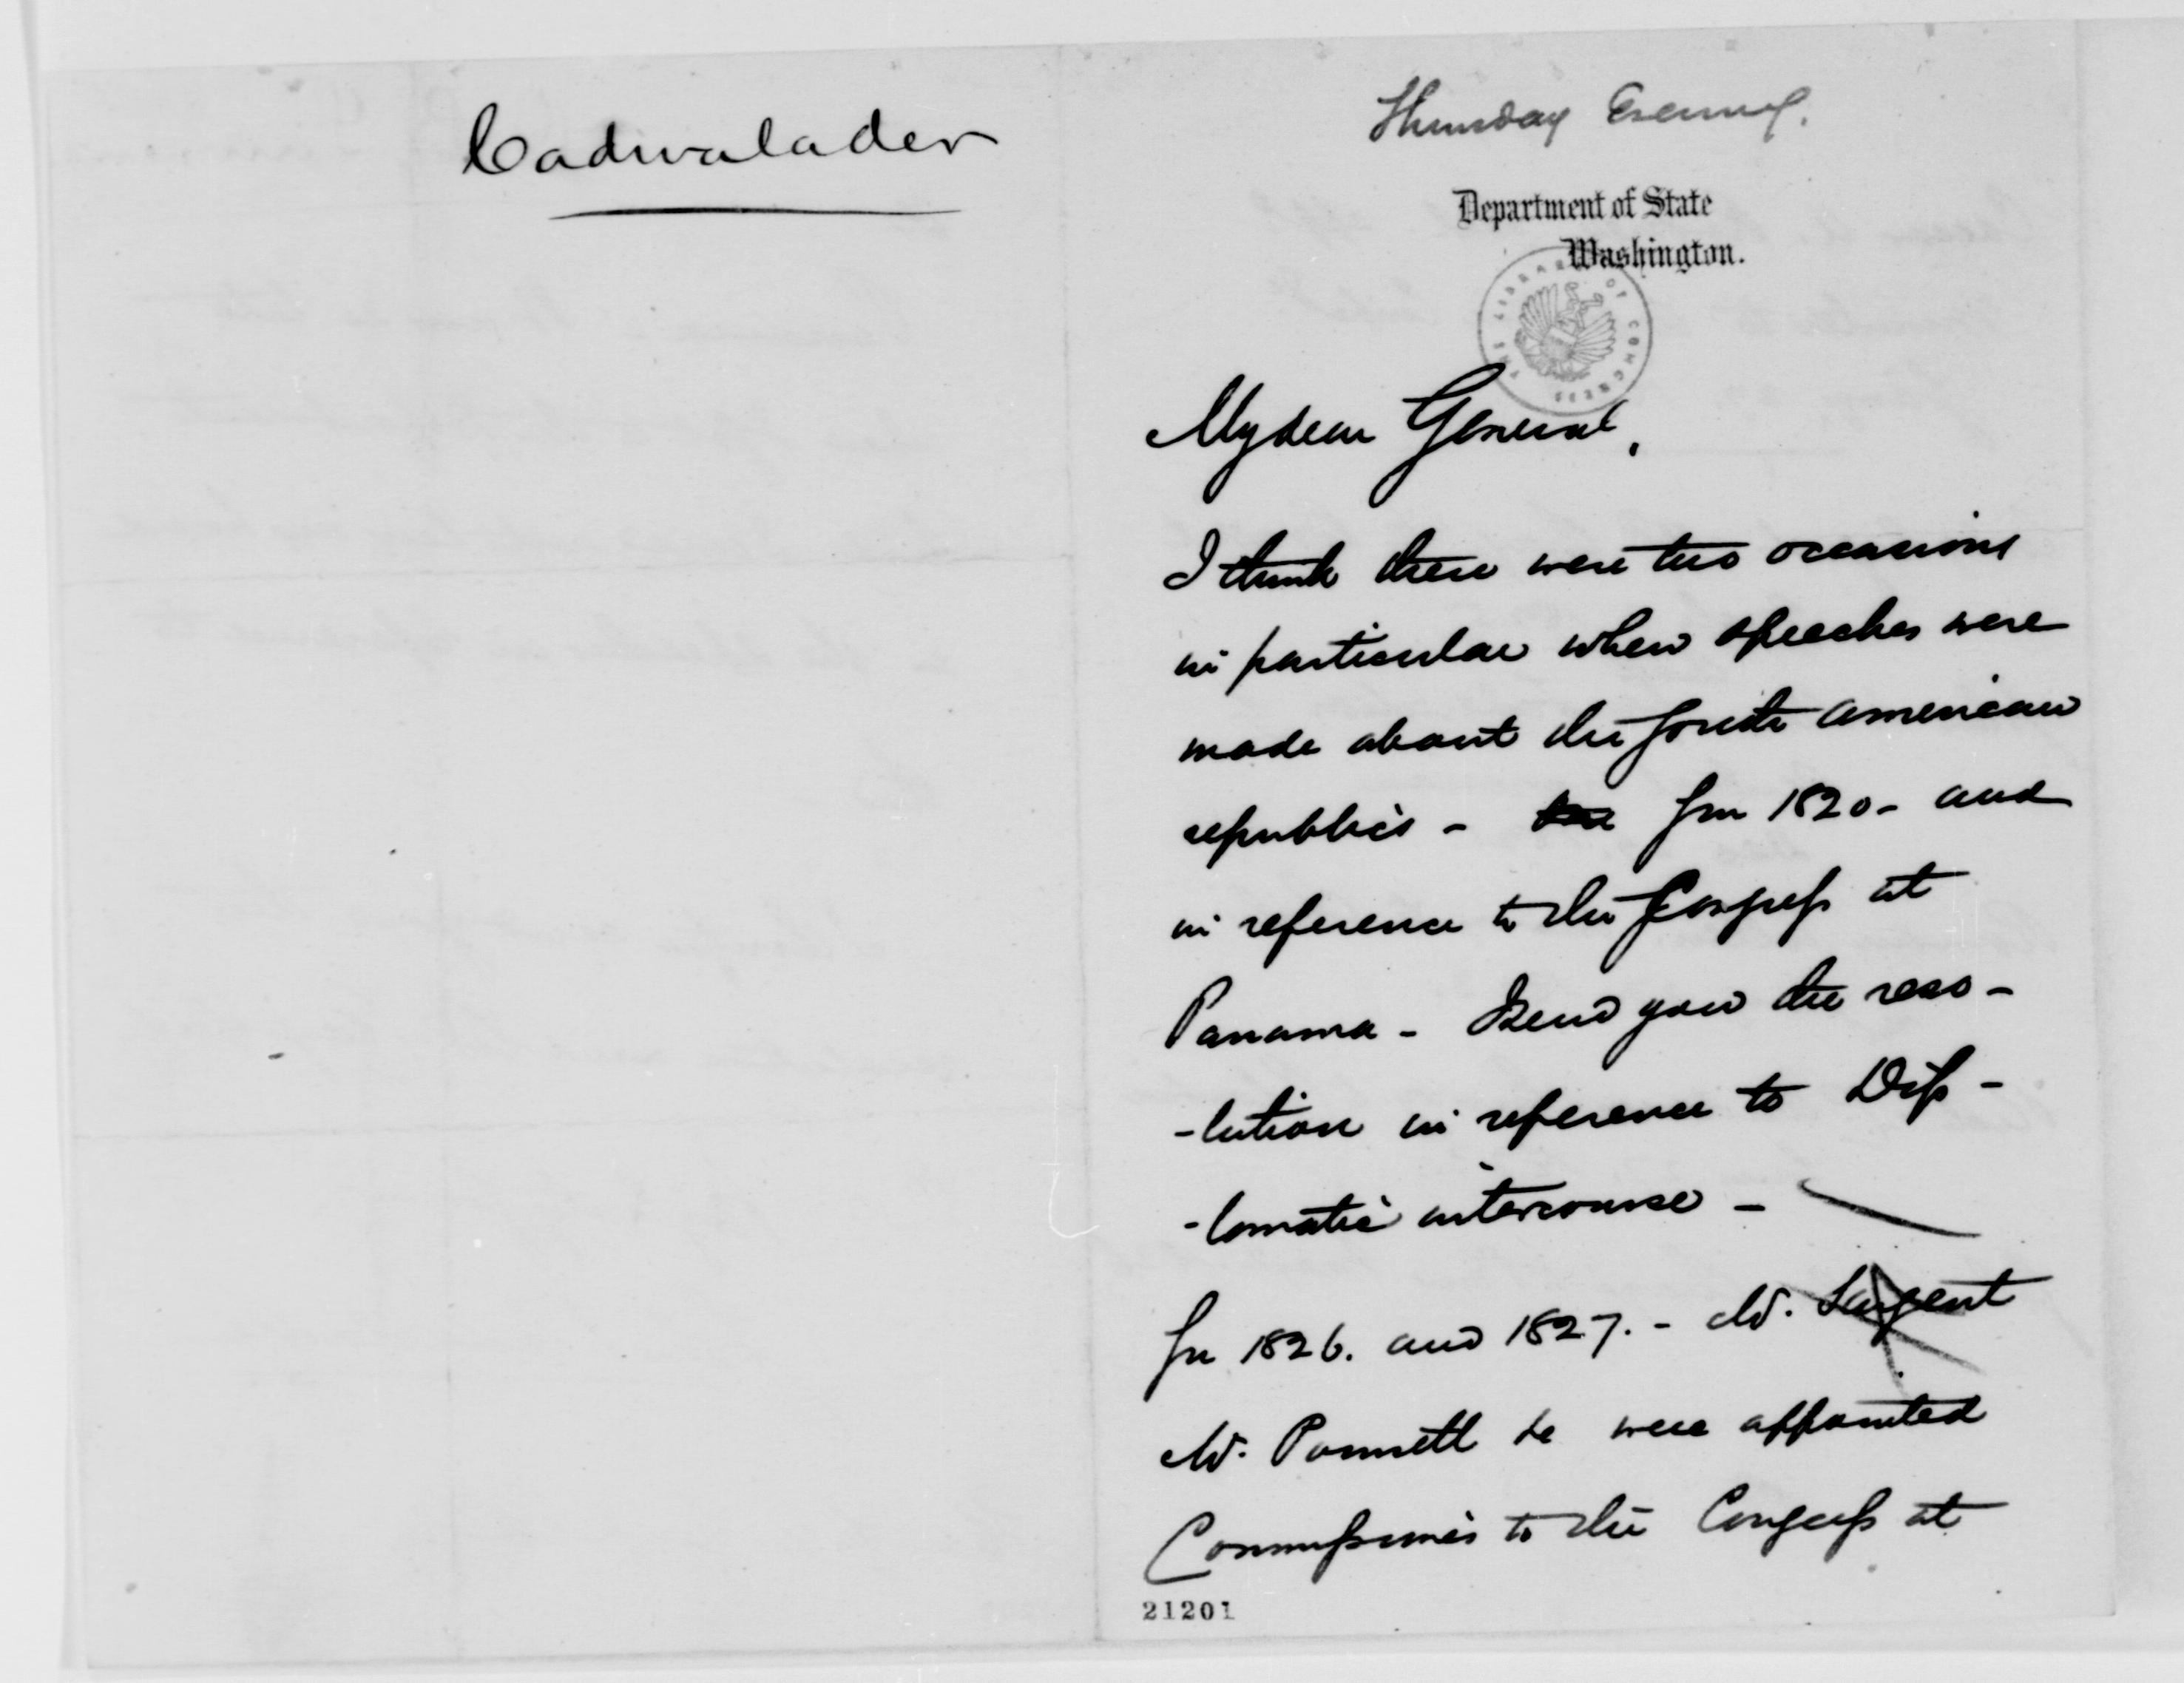 Cadwalader
Thursday Evening.
Department of State
Washington.
THE LIBRARY OF CONGRESS
My dear General,
I think there were two occasions
in particular when speeches were
made about the South American
republics - In 1820 - and
in reference to the Congress at
Panama - I send you the reso-
-lution in reference to Dip-
-lomatic intercourse -
In 1826. and 1827. - Mr. Sargent
Mr. Poinsett &c were appointed
Commissioners to the Congress at
21201